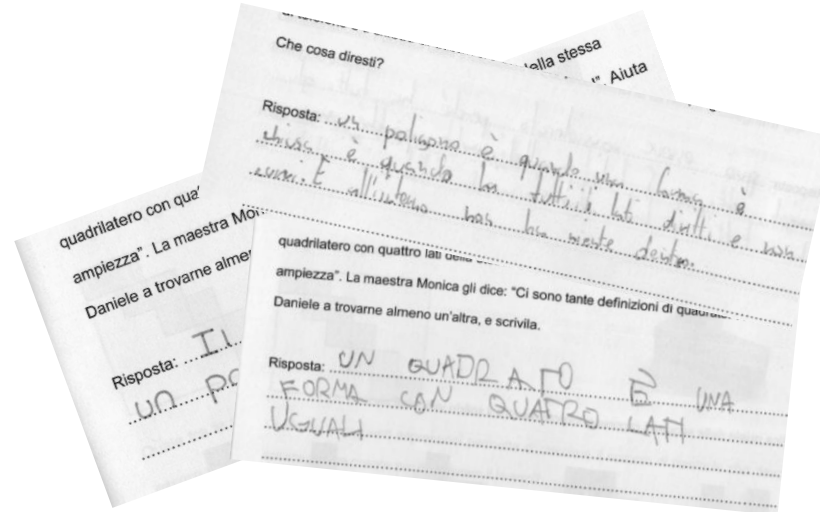 ella stessa
Aiuta
Che cosa diresti?
Risposta: un poligono è quando una forma è
chiusa è quando ha tutti i lati diritti e non
curvi. E all'interno non ha niente dentro.
quadrilatero con qua
ampiezza". La maestra Mon
Daniele a trovarne alme
Risposta: Il
un po
quadrilatero con quattro lati della
ampiezza". La maestra Monica gli dice: "Ci sono tante definizioni di quadrat
Daniele a trovarne almeno un'altra, e scrivila.
Risposta: UN QUADRATO È UNA
FORMA CON QUATRO LATI
UGUALI